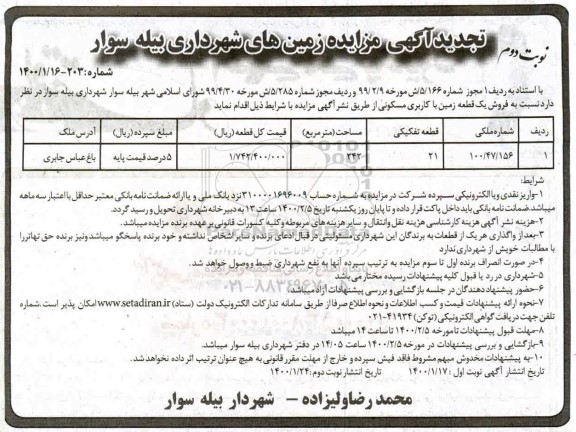 نوبت دوم
تجدید آگهی مزایده زمین های شهرداری بیله سوار
شماره: ۲۰۳-۱۴۰۰/۱/۱۶
با استناد به ردیف ۱ مجوز شماره ۵/۱۶۶/ش مورخه ۹۹/۲/۹ و ردیف مجوز شماره ۵/۲۸۵/ش مورخه ۹۹/۴/۳۰ شورای اسلامی شهر بیله سوار شهرداری بیله سوار در نظر
دارد نسبت به فروش یک قطعه زمین با کاربری مسکونی از طریق نشر آگهی مزایده با شرایط ذیل اقدام نماید
ردیف شماره ملکی قطعه تفکیکی مساحت (متر مربع) قیمت کل قطعه (ریال) مبلغ سپرده (ریال) آدرس ملک
۱ ۱۰۰/۴۷/۱۵۶ ۲۱ ۲۴۲ ۱/۷۴۲/۴۰۰/۰۰۰ ۵ درصد قیمت پایه باغ عباس جابری
شرایط:
۱-واریز نقدی و یا الکترونیکی سپرده شرکت در مزایده به شماره حساب ۳۱۰۰۰۰۱۶۹۶۰۰۹ نزد بانک ملی و یا ارائه ضمانت نامه بانکی معتبر حداقل با اعتبار سه ماهه
میباشد. ضمانت نامه بانکی باید داخل پاکت قرار داده و تا پایان روز یکشنبه تاریخ ۱۴۰۰/۲/۵ ساعت ۱۳ به دبیرخانه شهرداری تحویل و رسید گردد.
۲-هزینه نشر آگهی هزینه کارشناسی هزینه نقل وانتقال و سایر هزینه های مربوطه و کلیه کسورات قانونی بر عهده برنده مزایده میباشد.
۳-بعد از واگذاری هر یک از قطعات به برندگان این شهرداری مسئولیتی در قبال ادعای برنده و سایر اشخاص نداشته و خود برنده پاسخگو میباشد و نیز برنده حق تهاتر را
با مطالبات خویش از شهرداری ندارد
۴-در صورت انصراف برنده اول تا سوم مزایده به ترتیب سپرده آنها به نفع شهرداری ضبط و وصول خواهد شد.
۵-شهرداری در رد یا قبول کلیه پیشنهادات رسیده مختار می باشد
۶-حضور پیشنهاد دهندگان در جلسه بازگشایی و بررسی پیشنهادات آزاد میباشد.
۷-نحوه ارائه پیشنهادات قیمت و کسب اطلاعات و نحوه اطلاع صرفا از طریق سامانه تدارکات الکترونیک دولت (ستاد) www.setadiran.ir امکان پذیر است. شماره
تلفن جهت دریافت گواهی الکترونیکی (توکن) ۴۱۹۳۴-۰۲۱
۸-مهلت قبول پیشنهادات تا مورخه ۱۴۰۰/۲/۵ تا ساعت ۱۴ میباشد
۹-بازگشایی و بررسی پیشنهادات در مورخه ۱۴۰۰/۲/۵ ساعت ۱۴/۰۵ در دفتر شهرداری بیله سوار میباشد.
۱۰-به پیشنهادات مخدوش مبهم مشروط فاقد فیش سپرده و خارج از مهلت مقرر قانونی به هیچ عنوان ترتیب اثر داده نخواهد شد.
تاریخ انتشار آگهی نوبت اول: ۱۴۰۰/۱/۱۷ تاریخ انتشار نوبت دوم: ۱۴۰۰/۱/۲۴
محمد رضا ولیزاده – شهردار بیله سوار